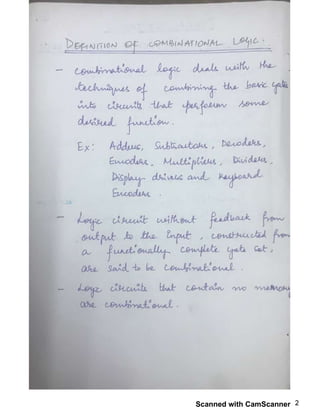 DEFINITION OF COMBINATIONAL LOGIC.
- combinational logic deals with the
techniques of combining the basic gates
into circuits that perform some
desired function.
Ex: Adders, Subtractors, Decoders,
Encoders, Multipliers, Dividers,
Display drives and keyboard
Encoders.
- Logic circuit without feedback from
output to the Input, constructed from
a functionally complete gate set,
are said to be combinational.
- Logic circuits that contain no memory
are combinational.
Scanned with CamScanner 2